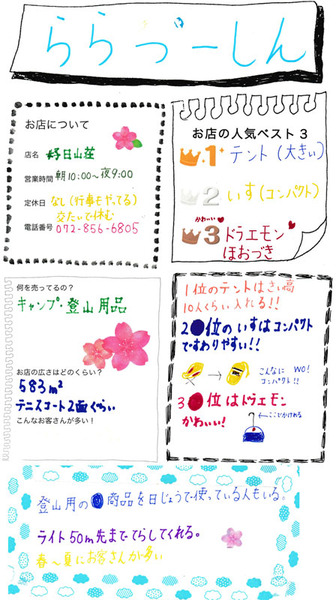 ららづーしん
お店について
店名 好日山荘
営業時間 朝10:00〜夜9:00
定休日 なし(行事もやってる)
交たいで休む
電話番号 072-856-6805
お店の人気ベスト3
1 テント(大きい)
2 いす(コンパクト)
かわいい
3 ドラエモン
ほおづき
何を売ってるの?
キャンプ・登山用品
お店の広さはどのくらい?
583m²
テニスコート2面くらい
こんなお客さんが多い!
1位のテントはさい高
10人くらい入れる!!
2位のいすはコンパクト
ですわりやすい!!
こんなに WO!
コンパクト!!
3位はドラエモン
かわいい!
ここにかけれる
登山用の商品を日じょうで使っている人もいる。
ライト50m先まででらしてくれる。
春〜夏にお客さんが多い